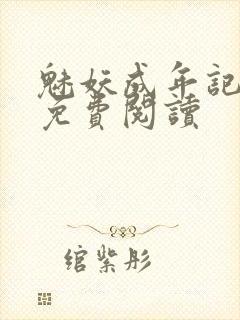 魅妖成年記
免費閱讀
綰紫彤